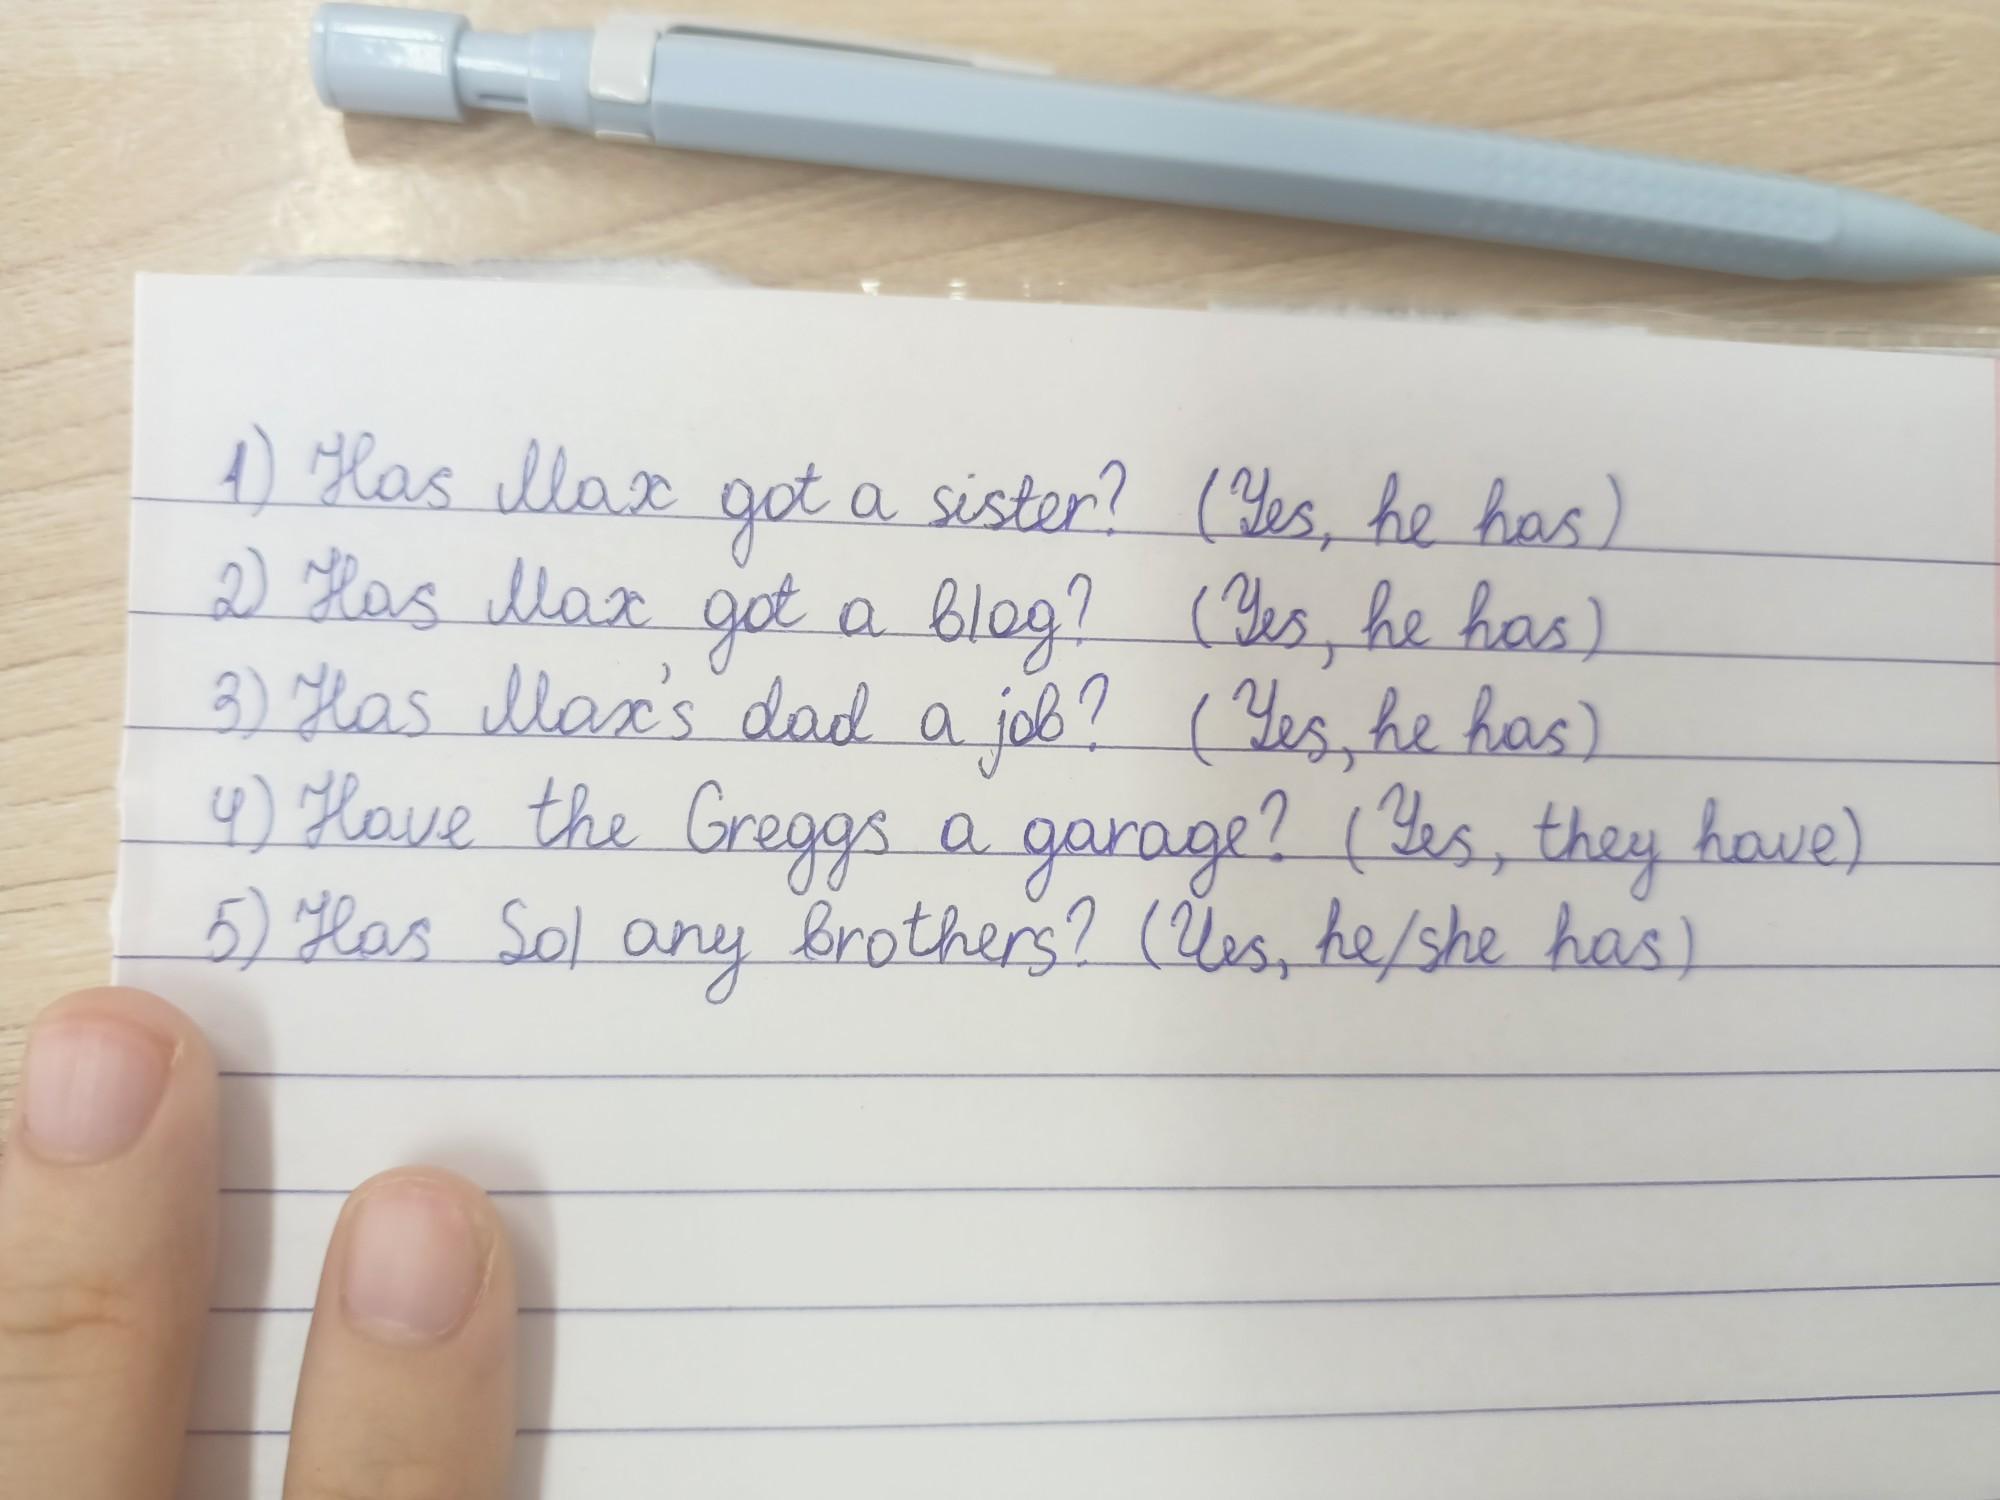 1) Has Max got a sister? (Yes, he has)
2) Has Max got a blog? (Yes, he has)
3) Has Max's dad a job? (Yes, he has)
4) Have the Greggs a garage? (Yes, they have)
5) Has Sol any brothers? (Yes, he/she has)